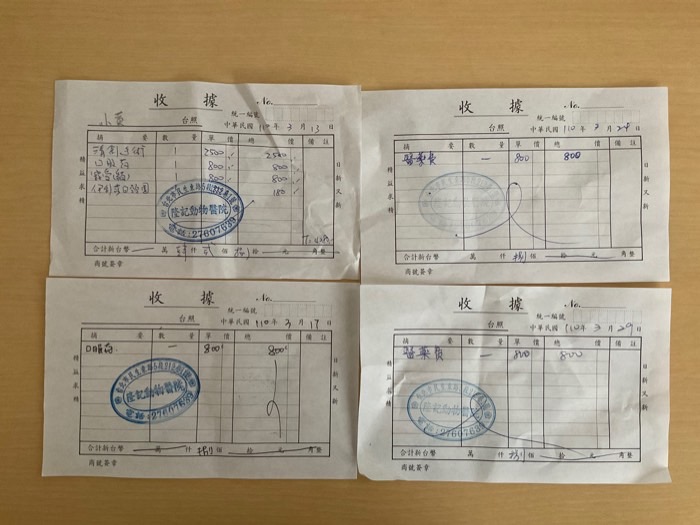 收據 No.
統一編號
台照 中華民國 110 年 3 月 13 日
摘要 數量 單價 總價 備註
1 2500 2500
口服藥 1 800 800
1 800 800
180
精益求精
日新又新
隆記動物醫院
電話:27607639
合計新台幣 萬 肆仟 貳佰 拾 元 角整
商號簽章
收據 No.
統一編號
台照 中華民國 110 年 3 月 24 日
摘要 數量 單價 總價 備註
醫藥費 一 800 800
精益求精
日新又新
合計新台幣 萬 仟 捌佰 拾 元 角整
商號簽章
收據 No.
統一編號
台照 中華民國 110 年 3 月 17 日
摘要 數量 單價 總價 備註
口服葯 一 800 800
精益求精
日新又新
隆記動物醫院
電話:27607639
合計新台幣 萬 仟 捌佰 拾 元 角整
商號簽章
收據 No.
統一編號
台照 中華民國 110 年 3 月 29 日
摘要 數量 單價 總價 備註
醫藥費 一 800 800
精益求精
日新又新
隆記動物醫院
電話:27607639
合計新台幣 萬 仟 捌佰 拾 元 角整
商號簽章